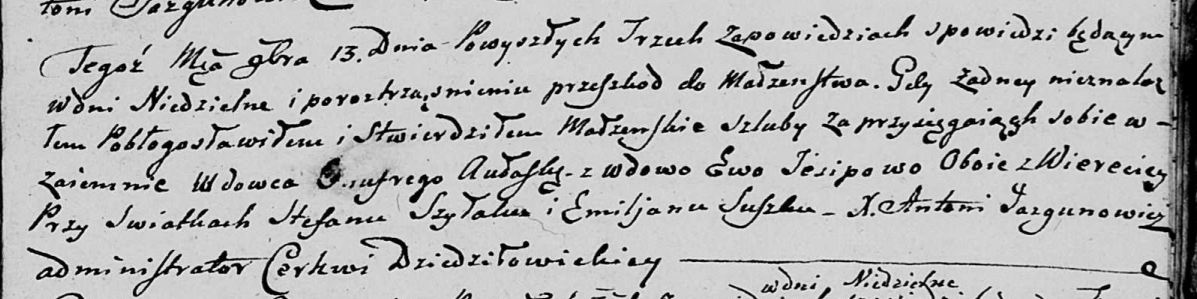 toni Jazgunow
Tegoż Mca 9bra 13. Dnia Powyszłych Trzech Zapowiedziach spowiedzi będącym
wdni Niedzielne i porostrząsnieniu przeszkod do Małżenstwa. Gdy żadney nieznalaz
łem Pobłogosławiłem i Stwierdziłem Małzenskie szluby za przysięgaiąch sobie w-
zaiemnie Wdowca Onufrego Audaszkę z wdowo Ewo Jesipowo Oboie z Wierecicy
Przy Swiatkach Stefanu Szyłaku i Emiljanu Suszku - X. Antoni Jazgunowicz
administrator Cerkwi Dziedziłowickiey
wdni Niedzielne